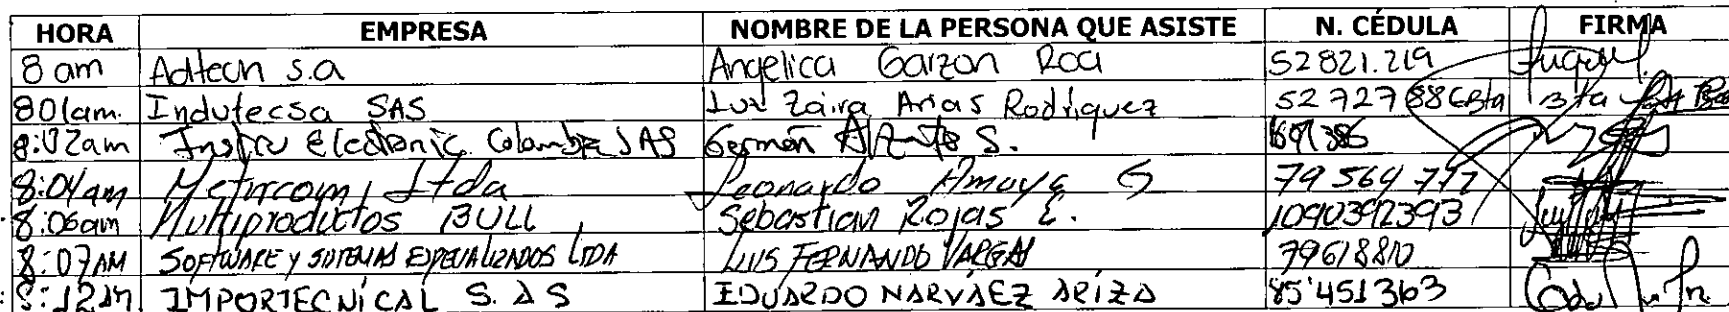 HORA EMPRESA NOMBRE DE LA PERSONA QUE ASISTE N. CÉDULA FIRMA
8 am Adtech s.a Angelica Garzon Roa 52821.219
801am. Indutecsa SAS Luz Zaira Arias Rodriguez 52 727 886 Bta
8:02am Instru Electronic Colombia SAS Germán S.
8:04am Metircom Ltda Leonardo Amaya G 79 564 777
8:06am Multiproductos BULL Sebastian Rojas E. 1090392393
8:07AM SOFTWARE Y SISTEMAS ESPECIALIZADOS LTDA LUIS FERNANDO VARGAS 79618810
8:12 IMPORTECNICAL S.AS EDUARDO NARVÁEZ ARIZA 85'451363